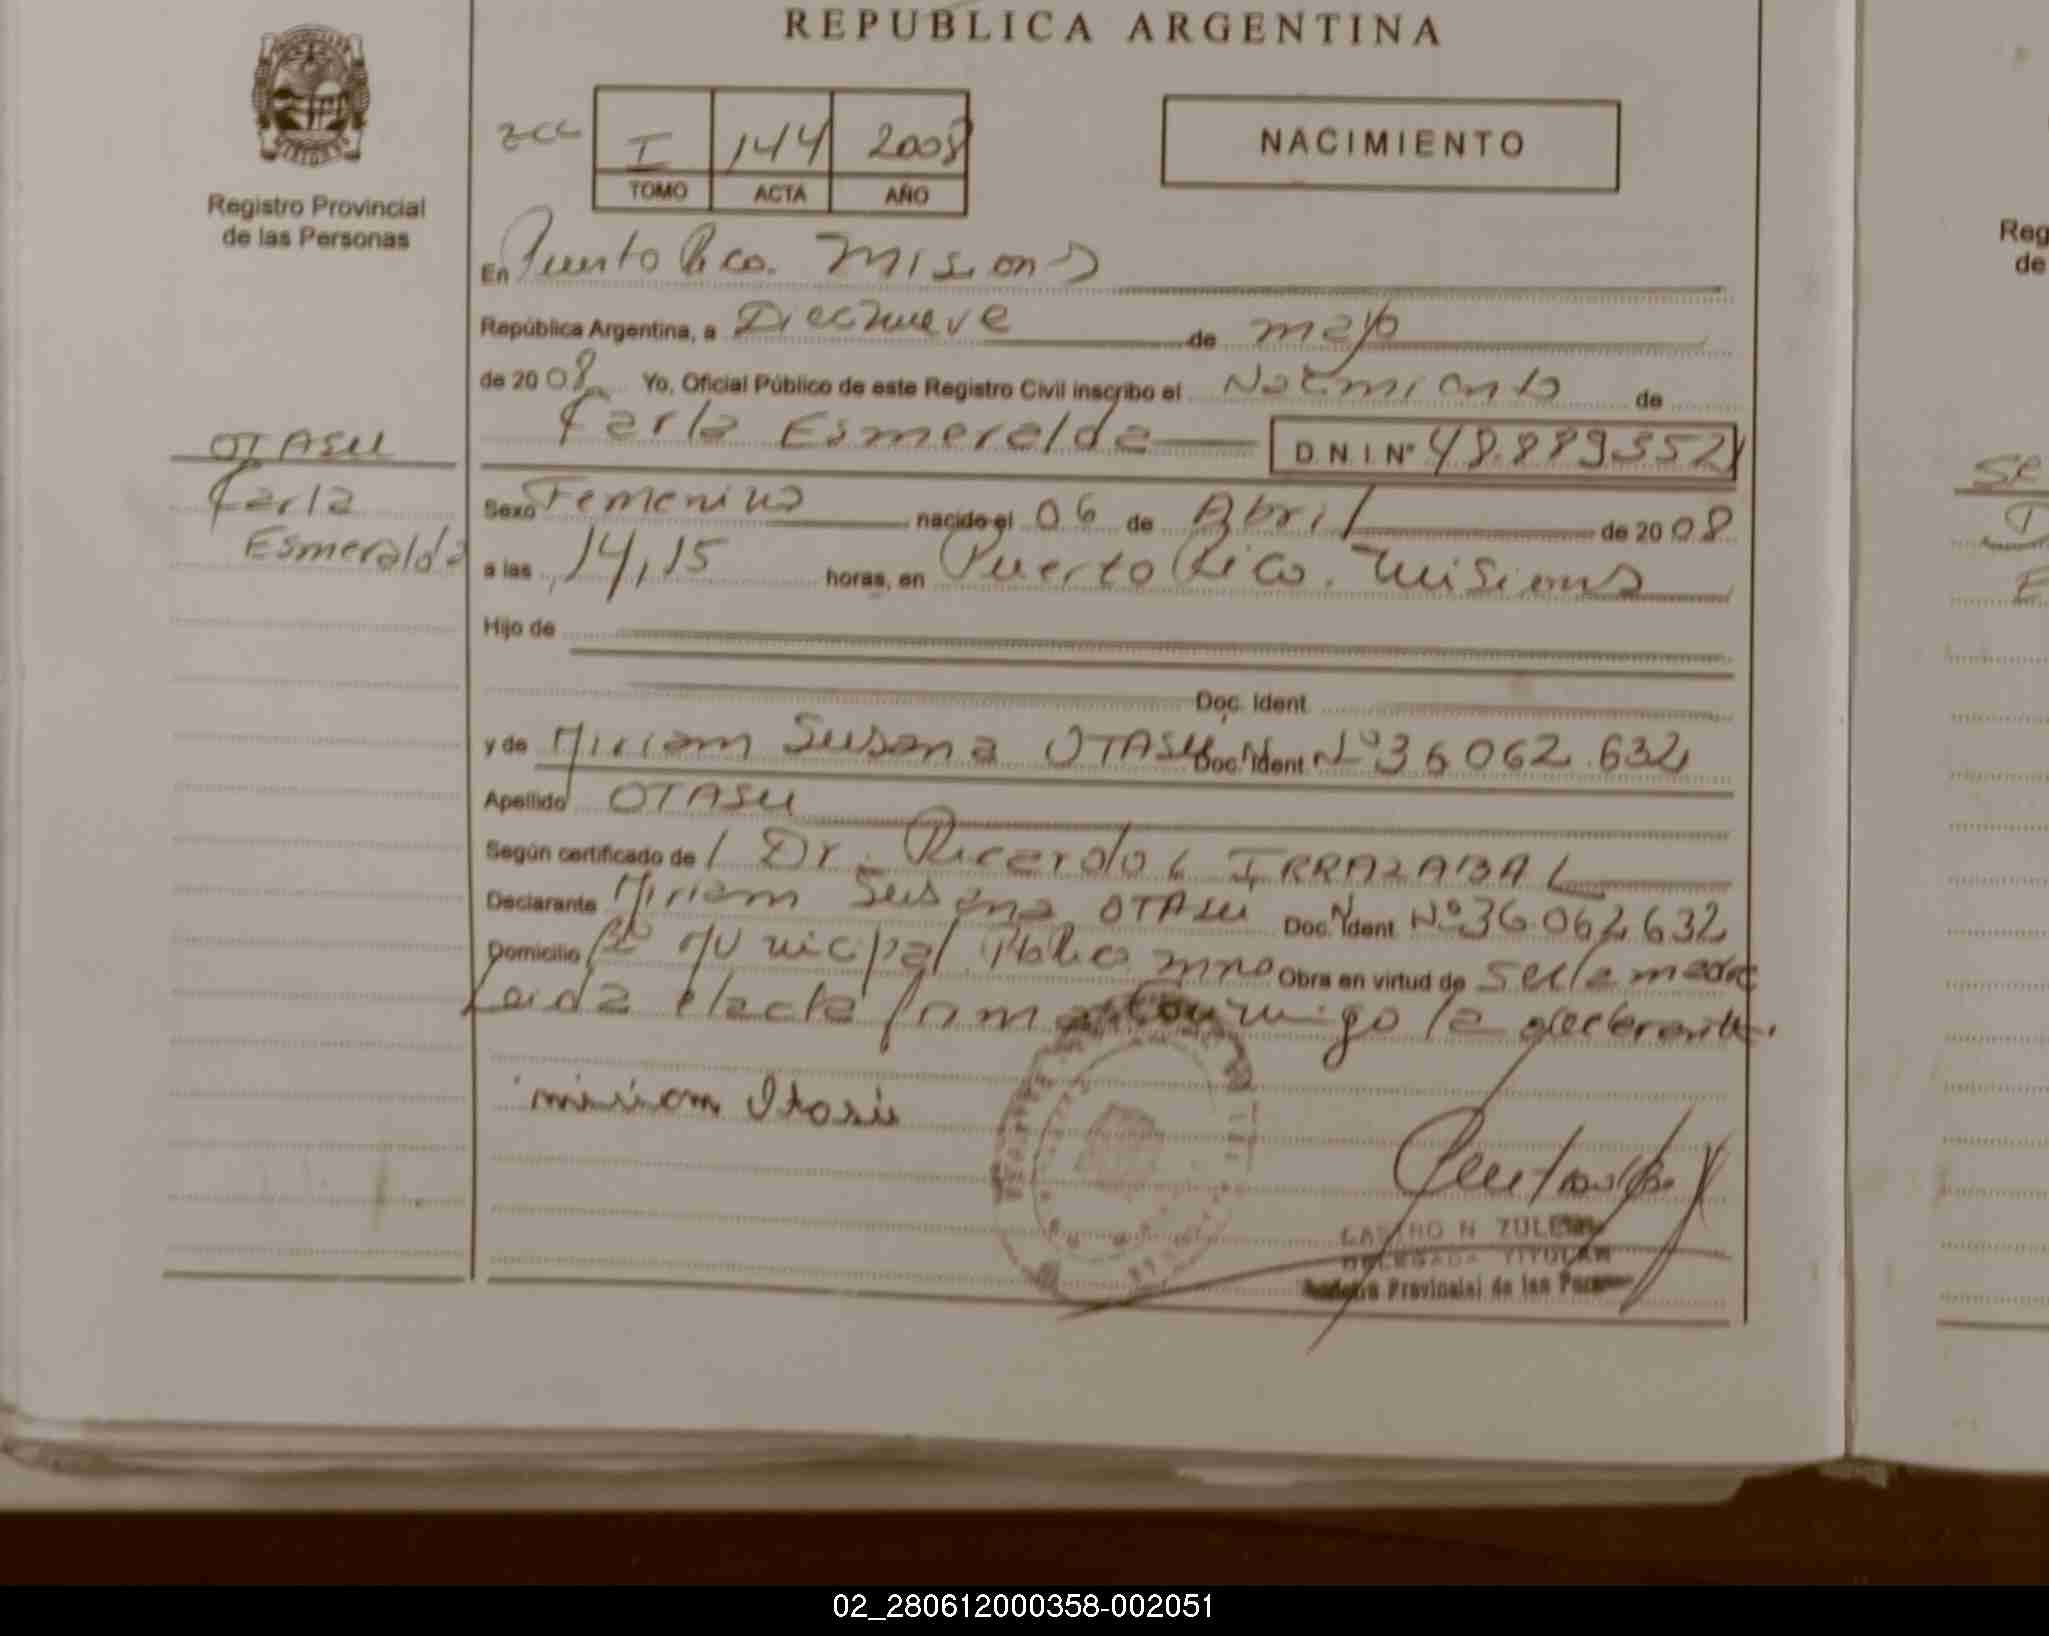 REPUBLICA ARGENTINA
Registro Provincial
de las Personas
I 144 2008
TOMO ACTA AÑO
NACIMIENTO
En Puerto Rico. Misiones
República Argentina, a Diecinueve de mayo
de 2008 Yo, Oficial Público de este Registro Civil inscribo el Nacimiento de
Karla Esmeralda D.N.I. Nº
OTASU
Karla
Esmeralda
Sexo Femenino nacido el 06 de Abril de 2008
a las 14,15 horas, en Puerto Rico. Misiones
Hijo de
Doc. Ident
y de Miriam Susana OTASU Doc. Ident Nº 36.062.632
Apellido OTASU
Según certificado de Dr. Ricardo IRRAZABAL
Declarante Miriam Susana OTASU Doc. Ident Nº 36.062.632
Domicilio Bº Municipal Pto Rico mnes Obra en virtud de ser la madre
Leida el acta firma conmigo la declarante.
miriam Otasú
CASTRO N ZULEMA
DELEGADA TITULAR
Provincial de las Personas
Reg
de
02_280612000358-002051